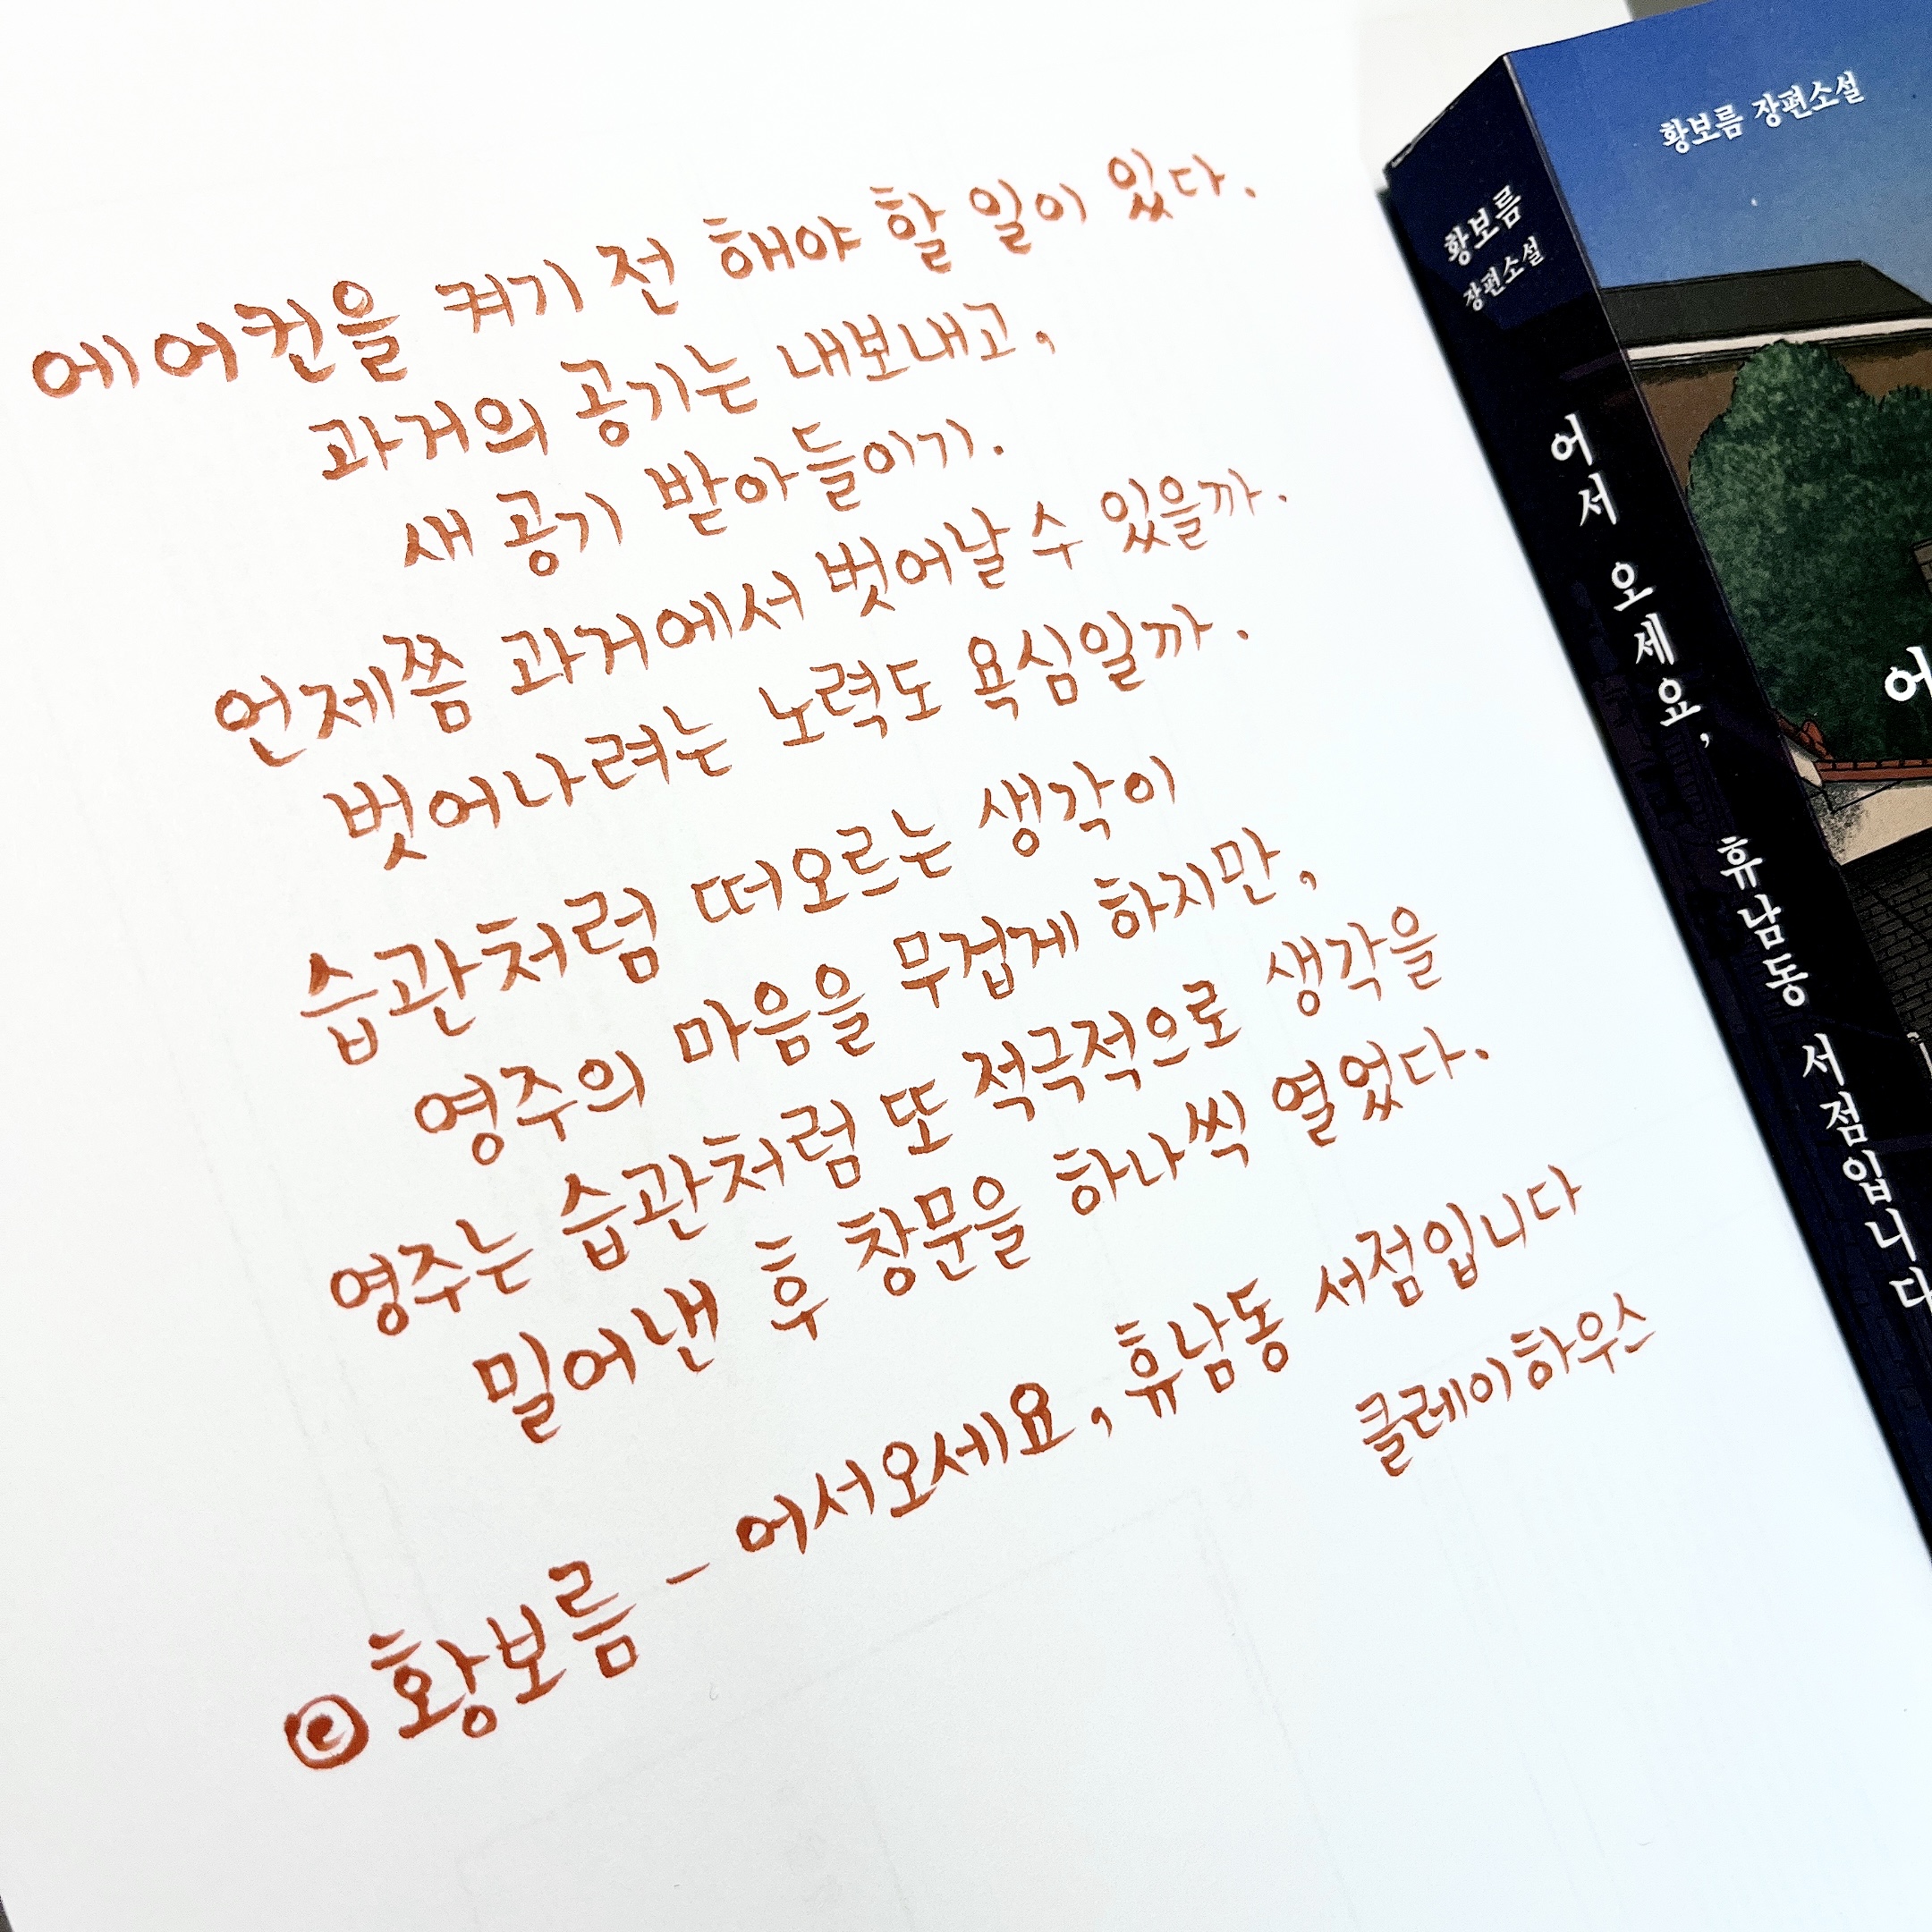 에어컨을 켜기 전 해야 할 일이 있다.
과거의 공기는 내보내고,
새 공기 받아들이기.
언제쯤 과거에서 벗어날 수 있을까.
벗어나려는 노력도 욕심일까.
습관처럼 떠오르는 생각이
영주의 마음을 무겁게 하지만,
영주는 습관처럼 또 적극적으로 생각을
밀어낸 후 창문을 하나씩 열었다.
ⓒ황보름 - 어서오세요, 휴남동 서점입니다
클레이하우스
황보름 장편소설
황보름
장편소설
어서 오세요, 휴남동 서점입니다
어